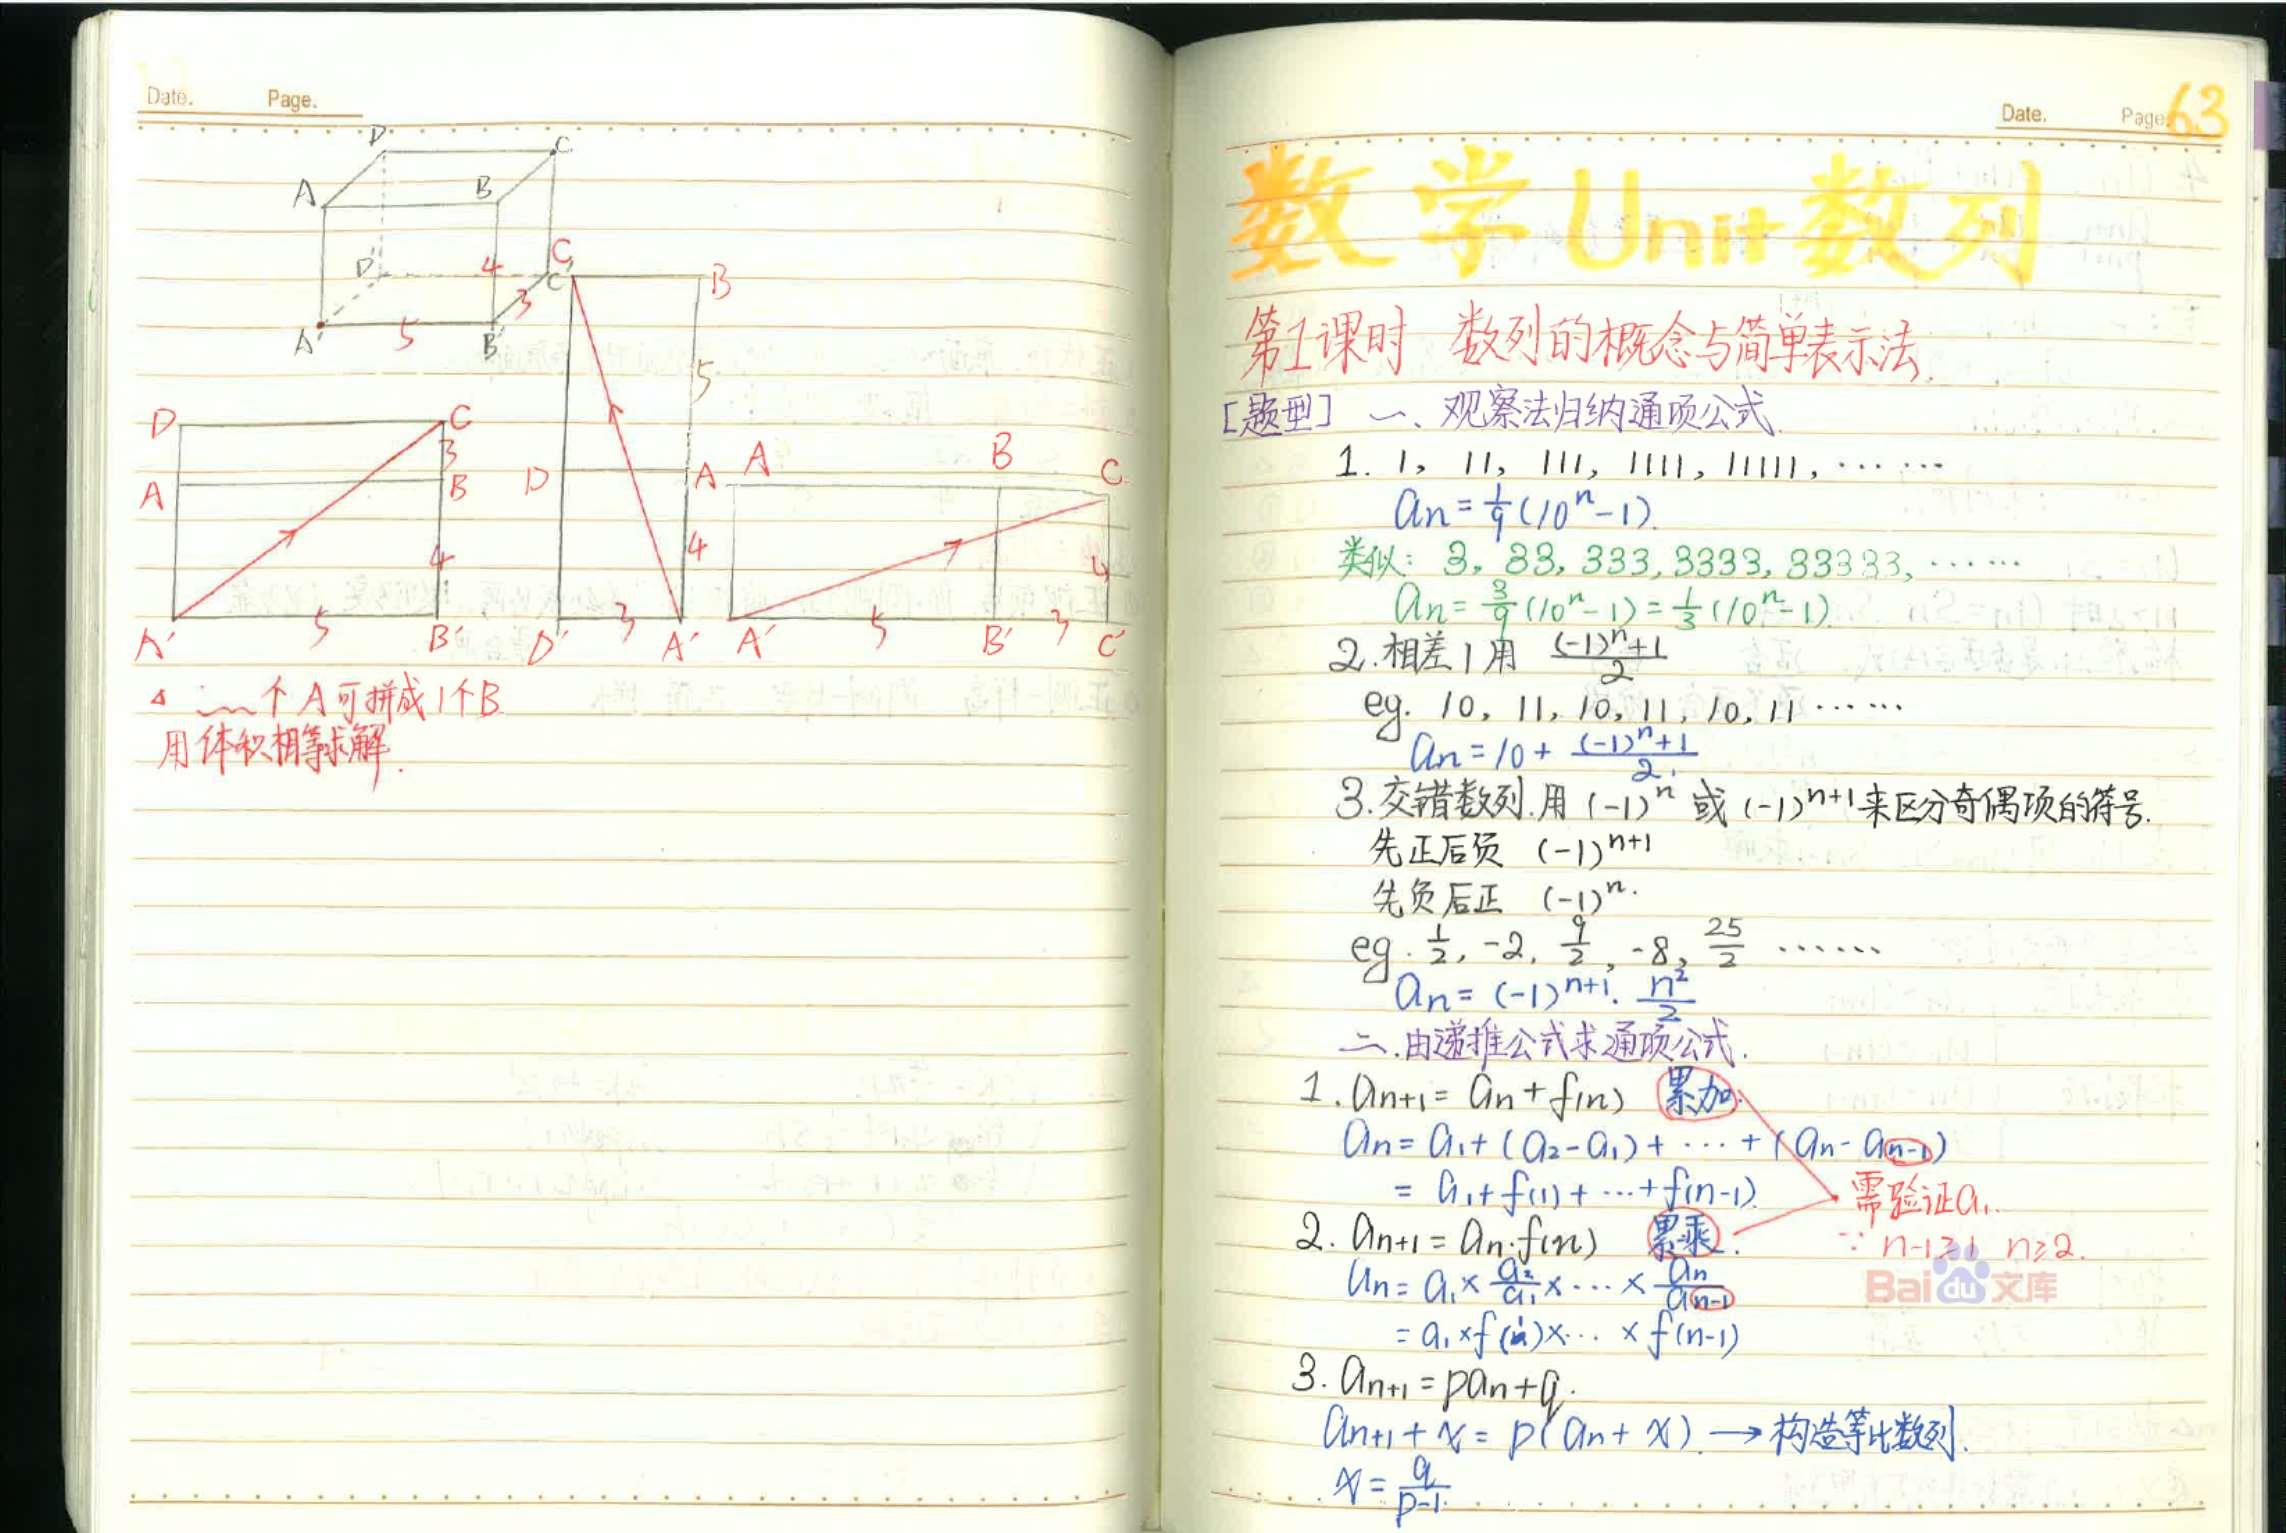 Date. Page.
D C
A B
D' 4 C'
3
A' 5 B'
C B
5
D A
4
D' 3 A'
D C
3
A B
4
A' 5 B'
A B C
4
A' 5 B' 3 C'
个A可拼成1个B
用体积相等求解.
Date. Page. 63
数学Unit数列
第1课时 数列的概念与简单表示法.
[题型] 一、观察法归纳通项公式.
1. 1, 11, 111, 1111, 11111, ……
an = 1/9 (10^n - 1).
类似: 3, 33, 333, 3333, 33333, ……
an = 3/9 (10^n - 1) = 1/3 (10^n - 1)
2. 相差1用 ((-1)^n+1)/2
eg. 10, 11, 10, 11, 10, 11 ……
an = 10 + ((-1)^n+1)/2.
3. 交错数列.用 (-1)^n 或 (-1)^(n+1) 来区分奇偶项的符号.
先正后负 (-1)^(n+1)
先负后正 (-1)^n.
eg. 1/2, -2, 9/2, -8, 25/2 ……
an = (-1)^(n+1) · n²/2
二.由递推公式求通项公式.
1. an+1 = an + f(n) 累加.
an = a1 + (a2 - a1) + … + (an - an-1)
= a1 + f(1) + … + f(n-1).
需验证a1.
2. an+1 = an·f(n) 累乘.
∵ n-1≥1 n≥2.
an = a1 × a2/a1 × … × an/an-1
= a1 × f(1) × … × f(n-1)
3. an+1 = pan + q.
an+1 + x = p(an + x). → 构造等比数列.
x = q/(p-1).
Baidu文库